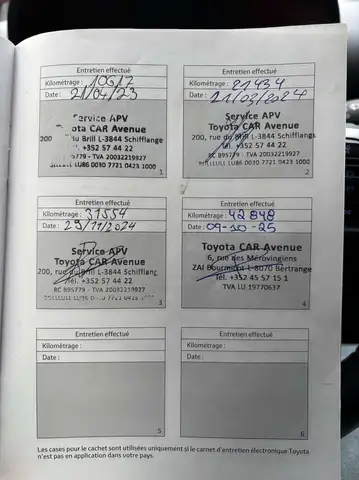 Entretien effectué
Kilométrage : 10617
Date : 21/04/23
Service APV
Toyota CAR Avenue
200, rue du Brill L-3844 Schifflang
Tél. +352 57 44 22
RC B95779 - TVA 20032219927
LULL LU86 0030 7721 0423 1000
1
Entretien effectué
Kilométrage : 21434
Date : 21/03/2024
Service APV
Toyota CAR Avenue
200, rue du Brill L-3844 Schifflang
Tél. +352 57 44 22
RC B95779 - TVA 20032219927
LU86 0030 7721 0423 1000
2
Entretien effectué
Kilométrage : 31554
Date : 29/11/2024
Service APV
Toyota CAR Avenue
200, rue du Brill L-3844 Schifflang
Tél. +352 57 44 22
RC B95779 - TVA 20032219927
3
Entretien effectué
Kilométrage : 42848
Date : 09-10-25
Toyota CAR Avenue
6, rue des Mérovingiens
ZAI Bourmicht L-8070 Bertrange
Tél. +352 45 57 15 1
TVA LU 19770637
4
Entretien effectué
Kilométrage :
Date :
5
Entretien effectué
Kilométrage :
Date :
6
Les cases pour le cachet sont utilisées uniquement si le carnet d'entretien électronique Toyota
n'est pas en application dans votre pays.